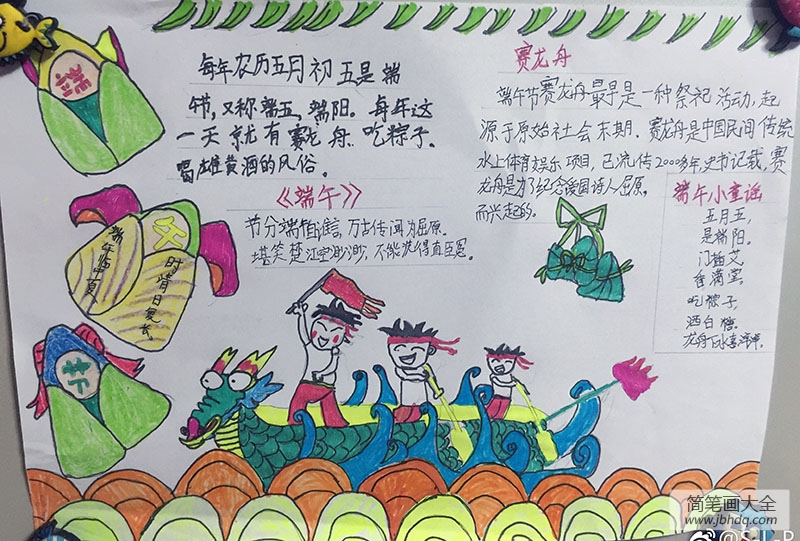 端
每年农历五月初五是端
午节,又称端五,端阳。每年这
一天就有赛龙舟、吃粽子、
喝雄黄酒的风俗。
赛龙舟
端午节赛龙舟最早是一种祭祀活动,起
源于原始社会末期。赛龙舟是中国民间传统
水上体育娱乐项目,已流传2000多年,史书记载,赛
龙舟是为了纪念爱国诗人屈原
而兴起的。
《端午》
节分端午自谁言,万古传闻为屈原。
堪笑楚江空渺渺,不能洗得直臣冤。
端午小童谣
五月五,
是端阳。
门插艾
香满堂。
吃粽子,
洒白糖。
龙舟下水喜洋洋。
午
端午临中夏,
时清日复长。
节
简笔画大全
www.jbhdq.com